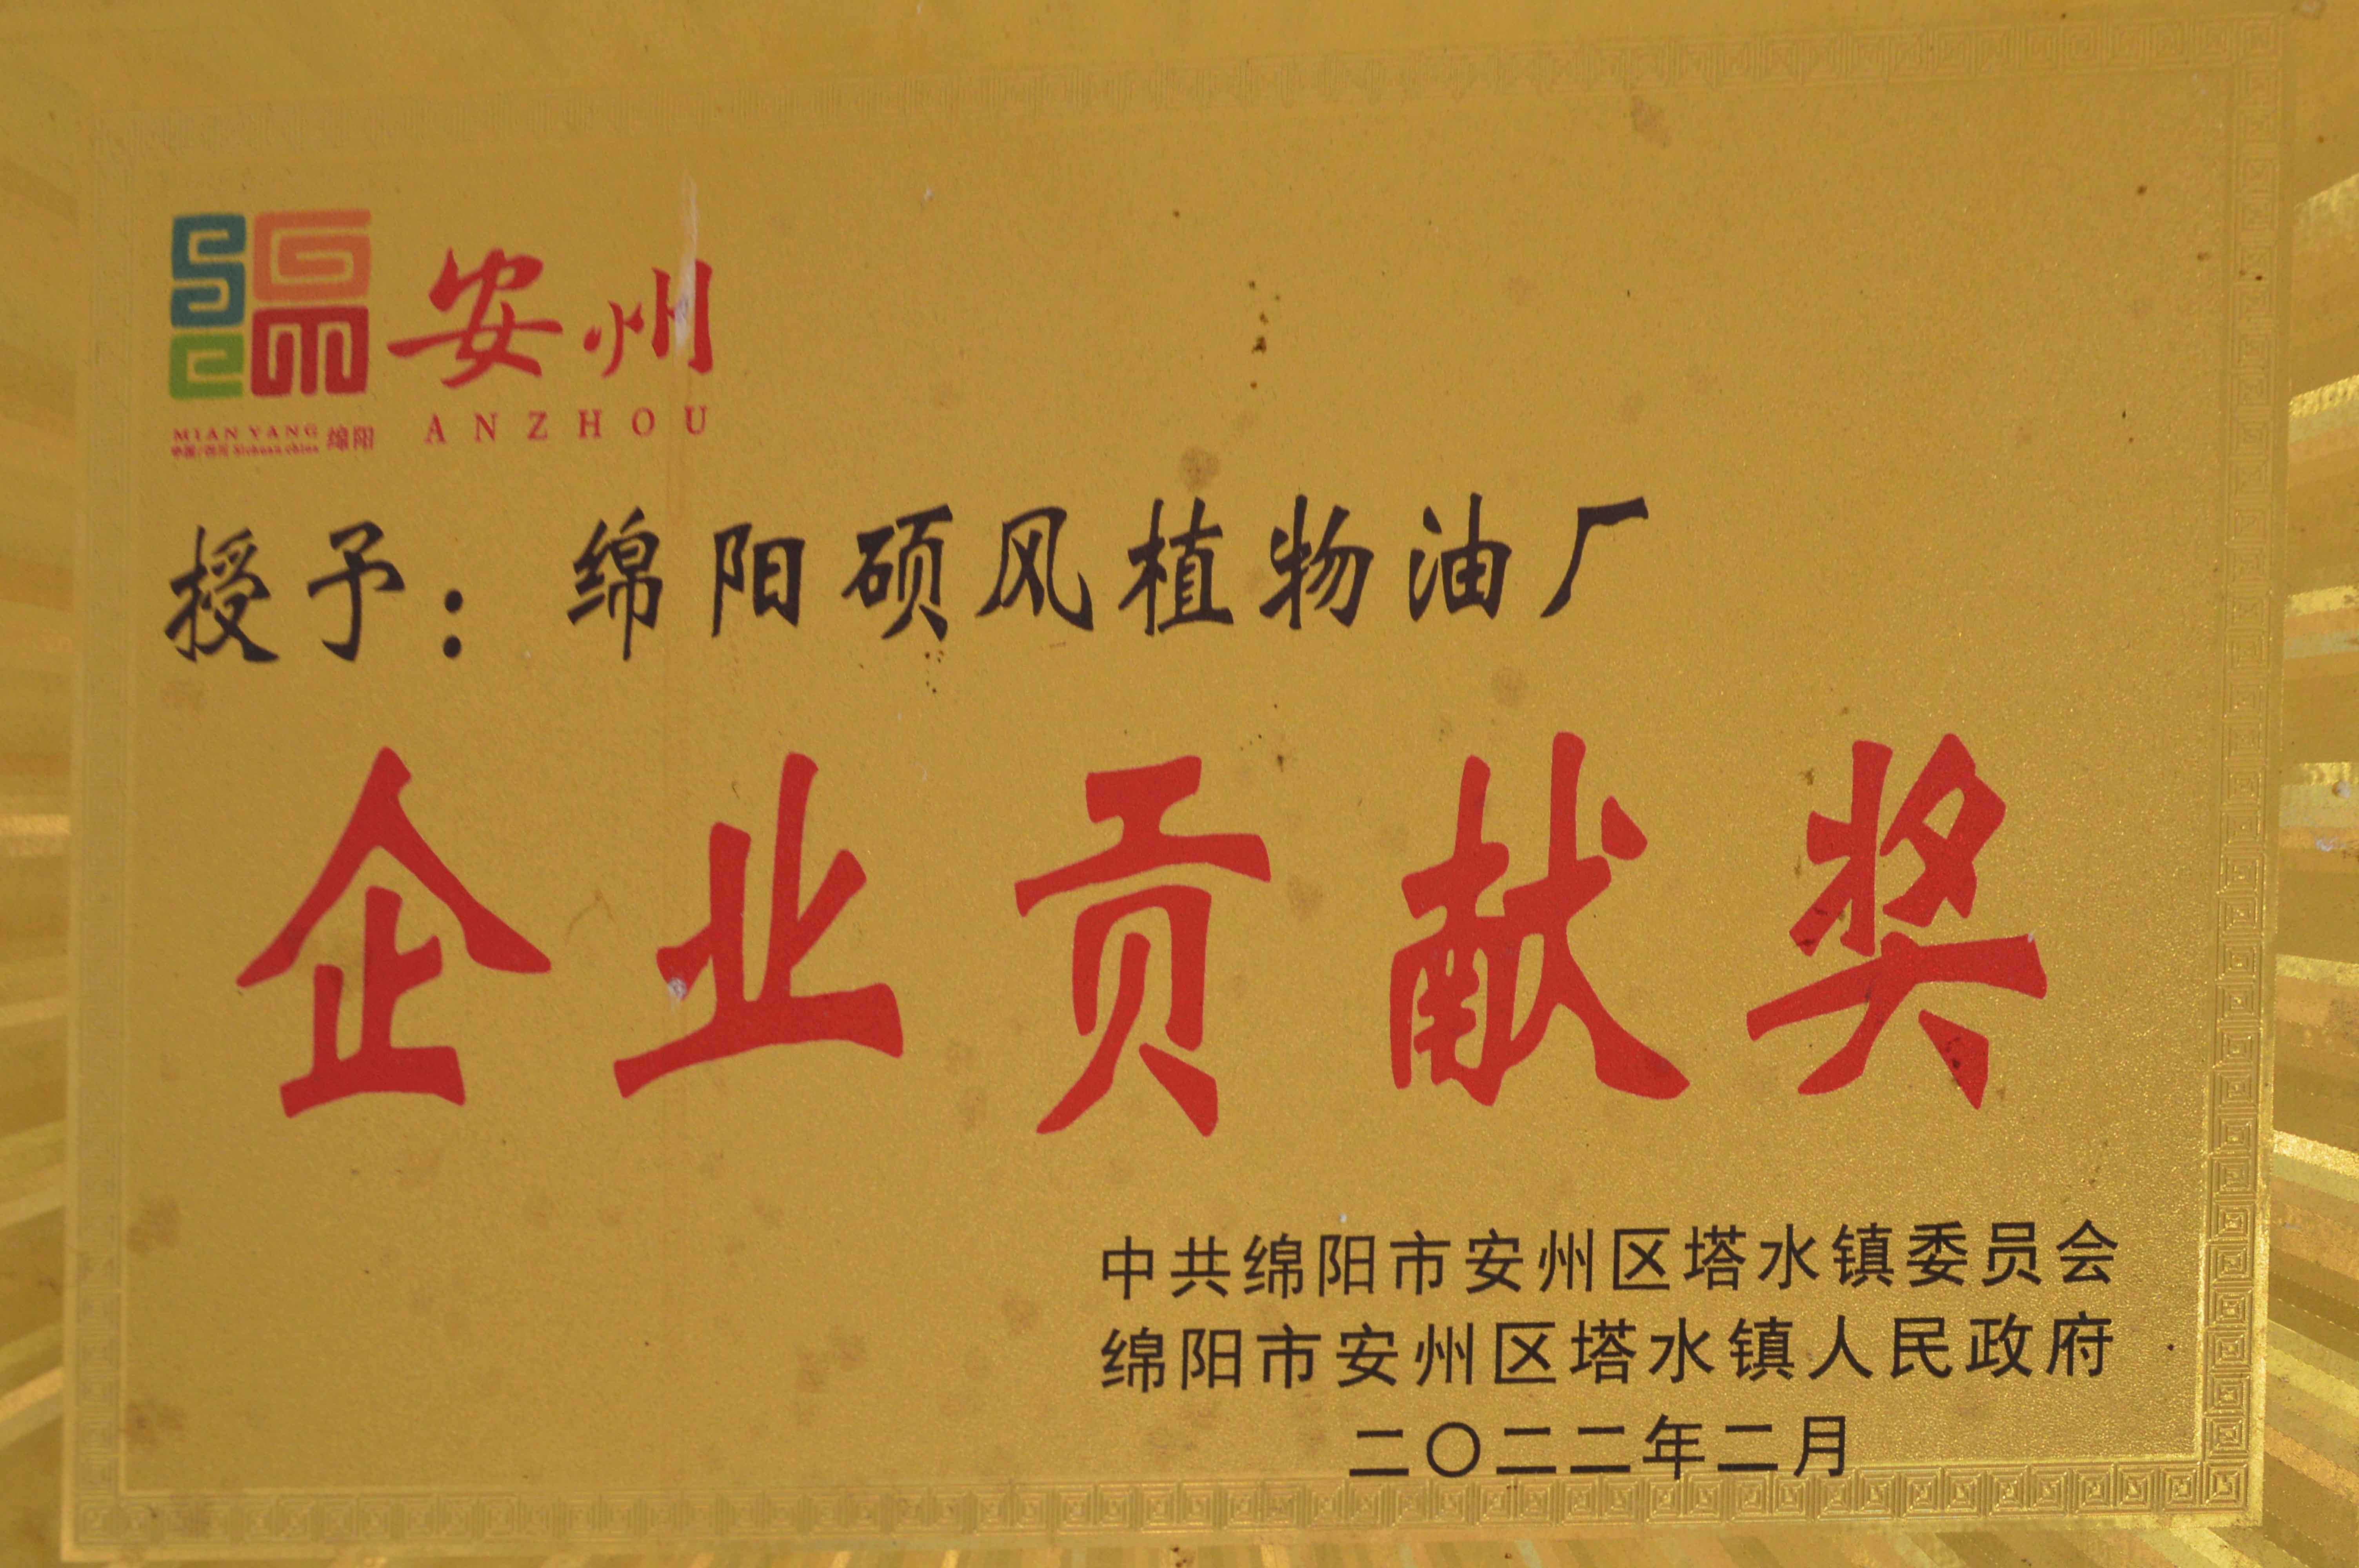 安州
ANZHOU
MIAN YANG 绵阳
中国/四川 Sichuan.china
授予：绵阳硕风植物油厂
企业贡献奖
中共绵阳市安州区塔水镇委员会
绵阳市安州区塔水镇人民政府
二〇二二年二月